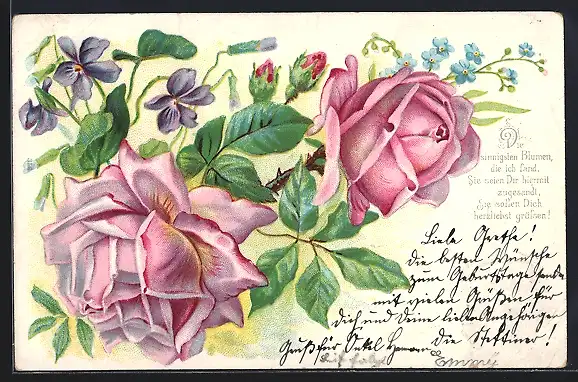 Die
sinnigsten Blumen,
die ich fand,
Sie seien Dir hiermit
zugesandt,
Sie sollen Dich
herzlichst grüßen!
Liebe Grethe!
die besten Wünsche
zum Geburtstage sende
mit vielen Grüßen für
dich und Deine lieben Angehörigen
Gruß für Onkel Herman die Stettiner!
Emmy